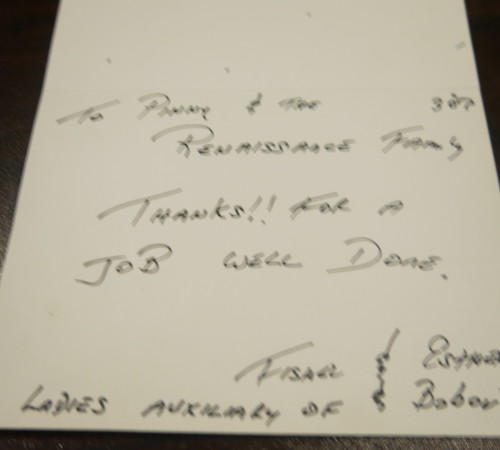 To Pinny & the
Renaissance Family
Thanks!! For a
JoB well Done.
Fisael & Esther
Ladies Auxiliary of Bobov